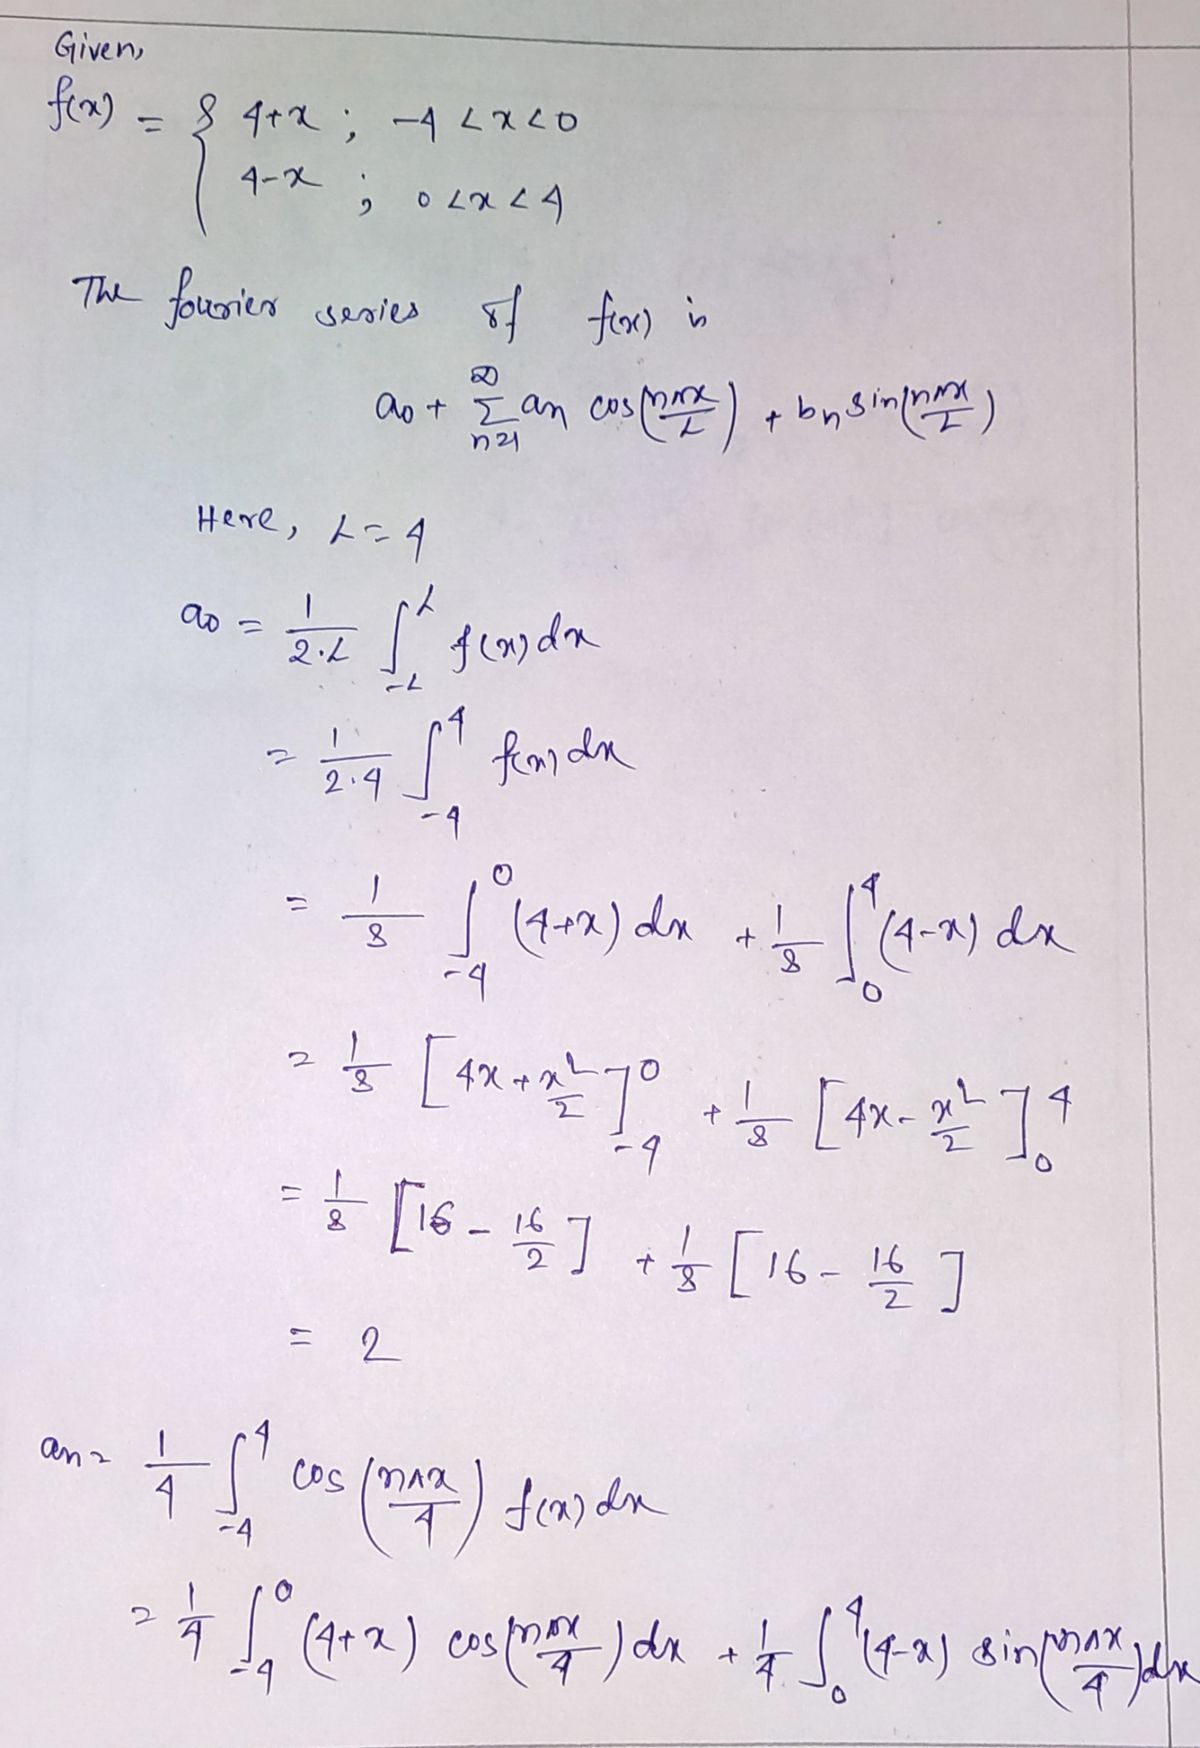 Given,
f(x) = { 4+x ; -4 < x < 0
4-x ; 0 < x < 4
The fourier series of f(x) is
a0 + ∑_{n=1}^{∞} an cos(nπx/L) + bn sin(nπx/L)
Here, L = 4
a0 = 1/(2·L) ∫_{-L}^{L} f(x) dx
= 1/(2·4) ∫_{-4}^{4} f(x) dx
= 1/8 ∫_{-4}^{0} (4+x) dx + 1/8 ∫_{0}^{4} (4-x) dx
= 1/8 [4x + x²/2]_{-4}^{0} + 1/8 [4x - x²/2]_{0}^{4}
= 1/8 [16 - 16/2] + 1/8 [16 - 16/2]
= 2
an = 1/4 ∫_{-4}^{4} cos(nπx/4) f(x) dx
= 1/4 ∫_{-4}^{0} (4+x) cos(nπx/4) dx + 1/4 ∫_{0}^{4} (4-x) sin(nπx/4) dx